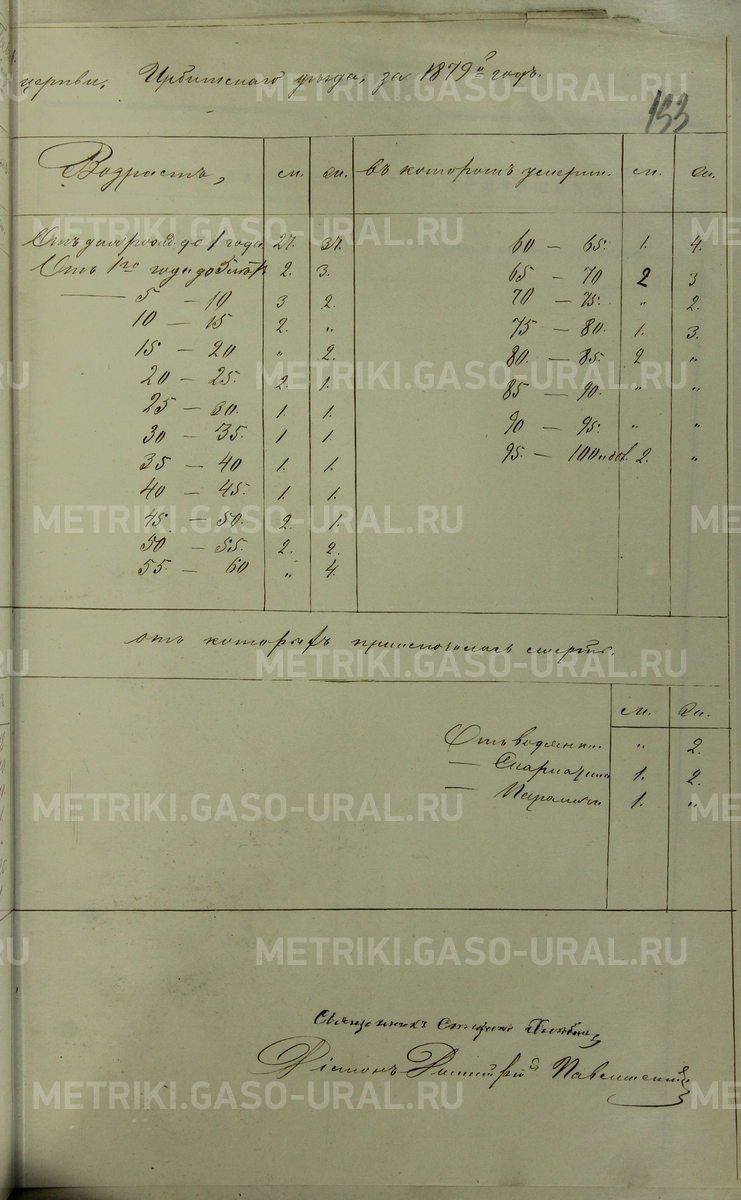 церкви, Ирбитскаго уѣзда, за 1879й годъ.
153
Возрастъ, м. ж. въ которомъ умерли. м. ж.
Отъ дня рожд. до 1 года 27. 37.
Отъ 1го года до 5 лѣтъ 2. 3.
— 5 — 10 3 2.
10 — 15 2. „
15 — 20 „ 2.
20 — 25. 2. 1.
25 — 30. 1. 1.
30 — 35. 1 1.
35 — 40 1. 1.
40 — 45. 1. 1.
45 — 50. 2. 1.
50 — 55. 2. 2.
55. — 60 „ 4.
60 — 65. 1. 4.
65 — 70 2 3
70 — 75. „ 2.
75 — 80. 1. 3.
80. — 85. 2 „
85 — 90. „ „
90 — 95. „ „
95. — 100 2. „
отъ которыхъ приключилась смерть.
м. ж.
Отъ водянки „ 2.
— Скарлатины 1. 2.
— 1. „
Священникъ
Діаконъ Димитрій
METRIKI.GASO-URAL.RU